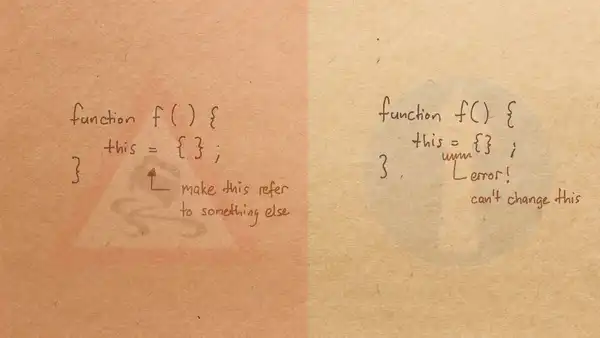 function f() {
this = {};
}
make this refer
to something else
function f() {
this = {};
}
error!
can't change this